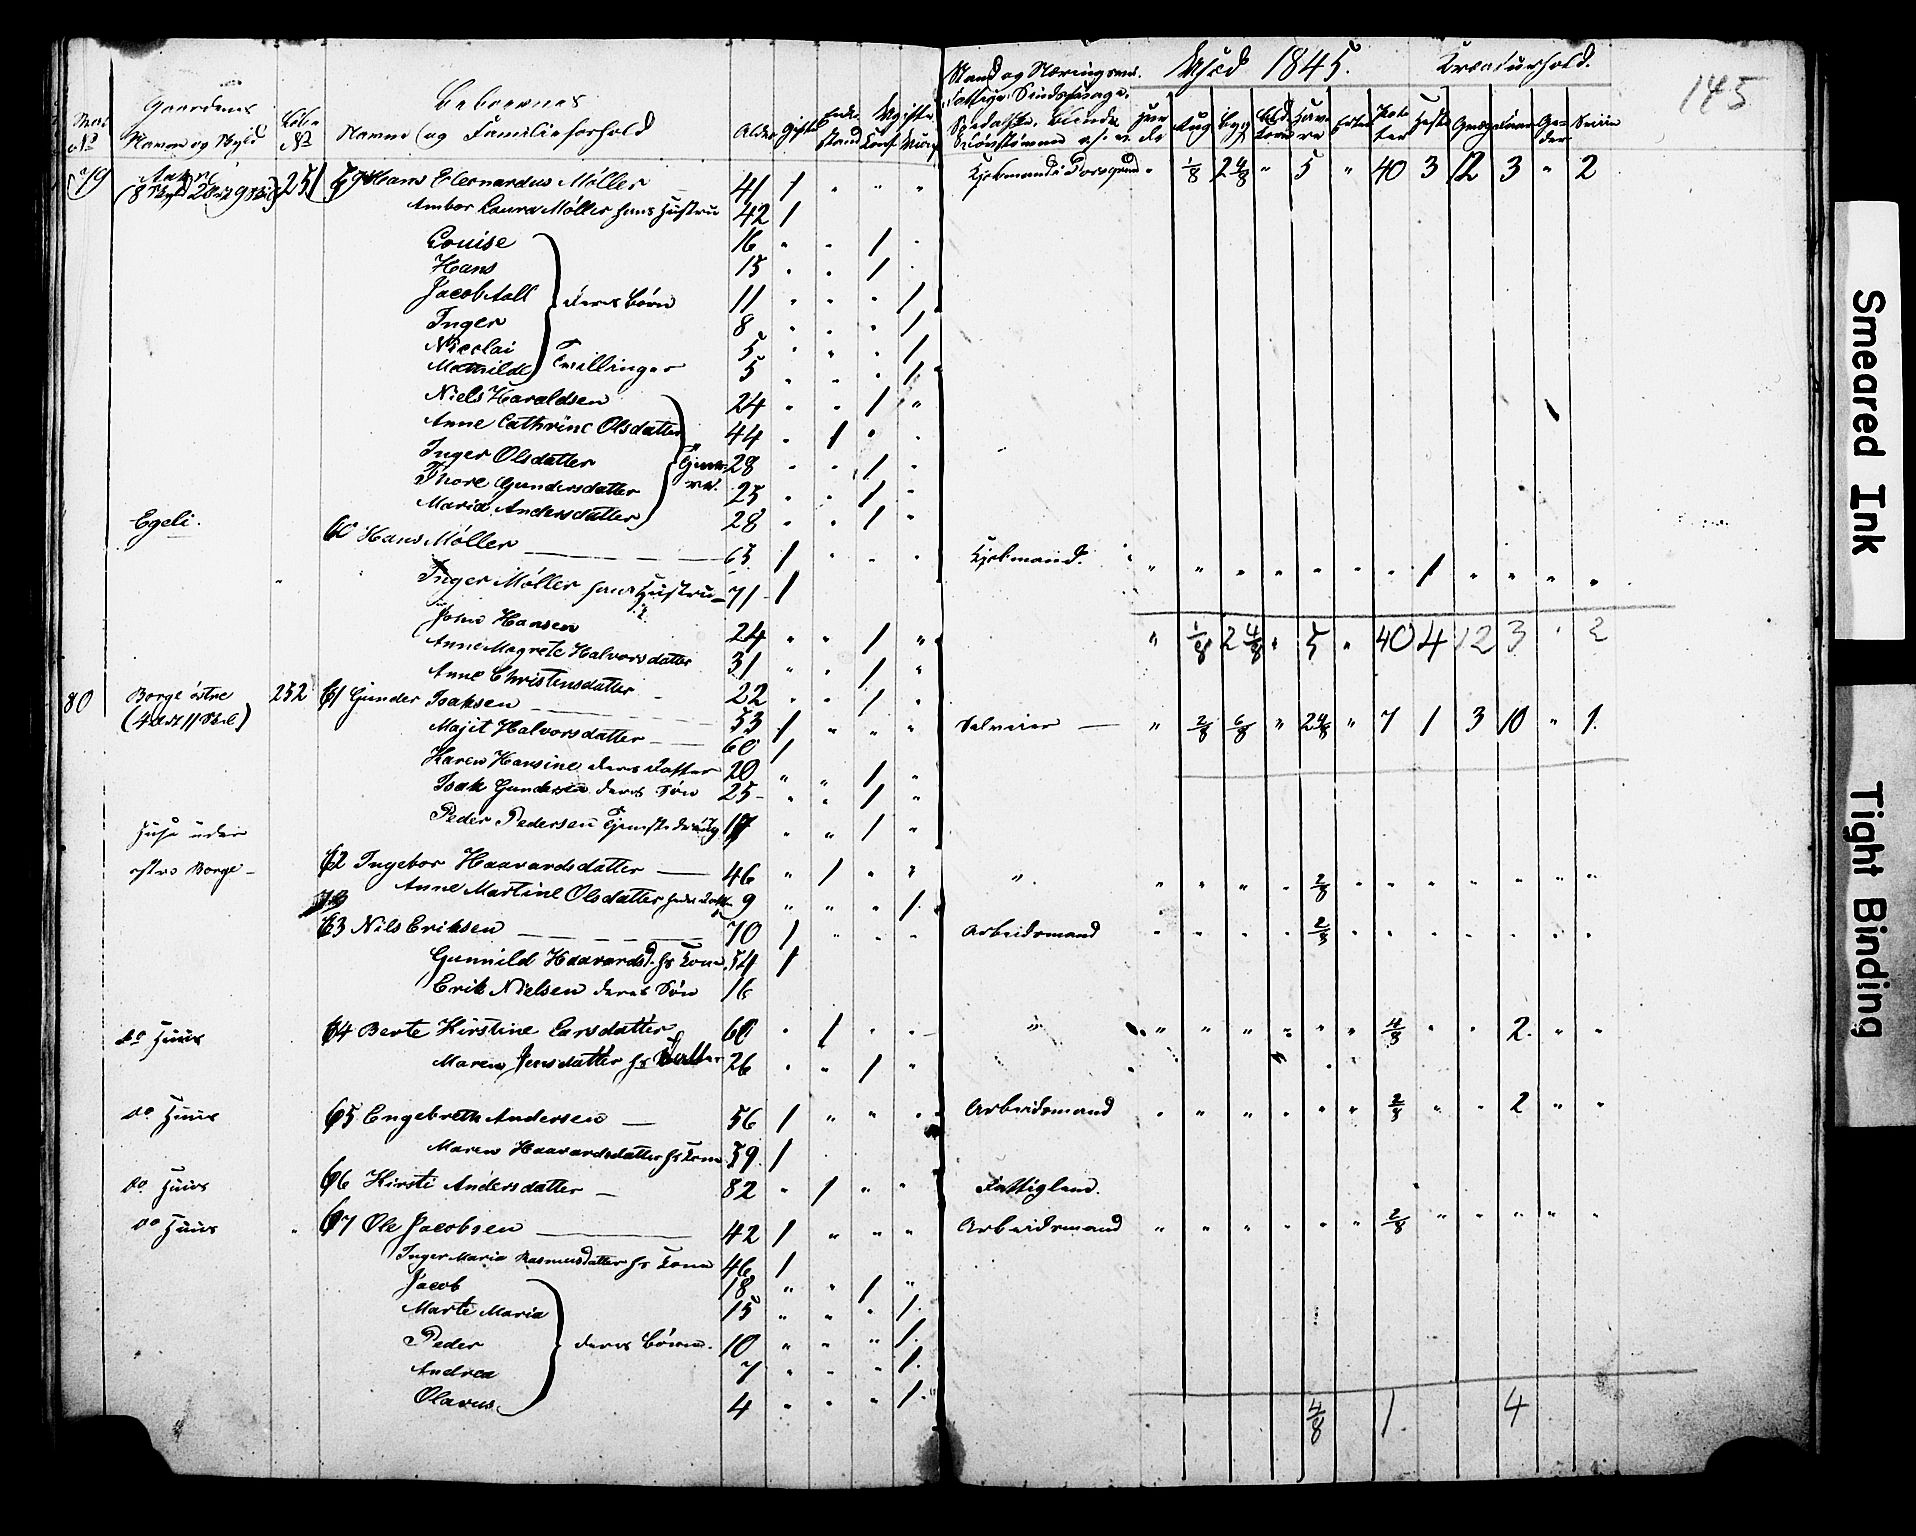 Udsæd 1845. Kreaturhold.
145
Gaardens Beboernes
Navne og Familieforhold Alder Gifte
79 251 59 Hans Elernardus Møller 41 1 " " " Kjøbmand i Porsgrund " 1/8 2 4/8 " 5 " 40 3 12 3 " 2
Ambor Laura Møller hans Hustru 42 1
Louise 16 " " 1 "
Hans 15 " " 1 "
Jacob Aall deres Børn 11 " " " 1
Inger 8 " " " 1
Nicolai 5 " " " 1
Mathilde Tvillinger 5 " " " 1
Niels Haraldsen 24 " " 1 "
Anne Cathrine Olsdatter 44 " 1 " "
Inger Olsdatter 28 " " 1 "
Thore Gundersdatter 25 " " 1 "
Maria Andersdatter 28 " " 1 "
Egeli. 60 Hans Møller 65 1 " " " Kjøbmand. " " " " " " " 1 " " " "
Inger Møller hans Hustru 71 1
John Hansen 24 " " 1 "
" 1/8 2 4/8 " 5 " 40 4 12 3 " 2
Anne Magrete Halvorsdatter 31 " " 1 "
Anne Christensdatter 22 " " 1 "
80 Borge østre 252 61 Gunder Isaksen 53 1 " " " Selveier " 2/8 6/8 " 2 4/8 " 7 1 3 10 " 1
Majit Halvorsdatter 60 1
Karen Hansine deres Datter 20 " " 1 "
Isak Gundersen deres Søn 25 " " 1 "
Peder Pedersen Tjenestedräng 17 " " 1 "
Huse under
østre Borge 62 Ingebor Haavardsdatter 46 " 1 " " " " " " " 2/8 " " " " " " "
Anne Martine Olsdatter 9 " " " 1
63 Nils Eriksen 70 1 " " " Arbeidsmand " " " " 2/8 " " " " " " "
Gunnild Haavardsd. hs Kone 54 1
Erik Nielsen deres Søn 16
do Huus 64 Berte Kirstine Larsdatter 60 " 1 " " " " " " " " " 4/8 " " 2 " "
Maren Jensdatter hs Datter 26 " " 1 "
do Huus 65 Engebreth Andersen 56 1 " " " Arbeidsmand " " " " " " 2/8 " " 2 " "
Maren Haavardsdatter hs Kone 59 1
do Huus 66 Kirsti Andersdatter 82 " 1 " " Fattiglem.
do Huus 67 Ole Jacobsen 42 1 " " " Arbeidsmand " " " " " " 2/8 " " " " "
Inger Maria Rasmusdatter hs Kone 46 1
Jacob 18 " " 1 "
Marte Maria 15 " " " 1
Peder deres Børn. 10 " " " 1
Andrea 7 " " " 1
Olavus 4 " " " 1
4/8 1 4
Smeared Ink
Tight Binding